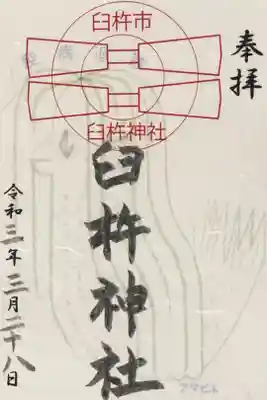 奉拝
臼杵市
臼杵神社
臼杵神社
令和三年三月二十八日
アマビエ